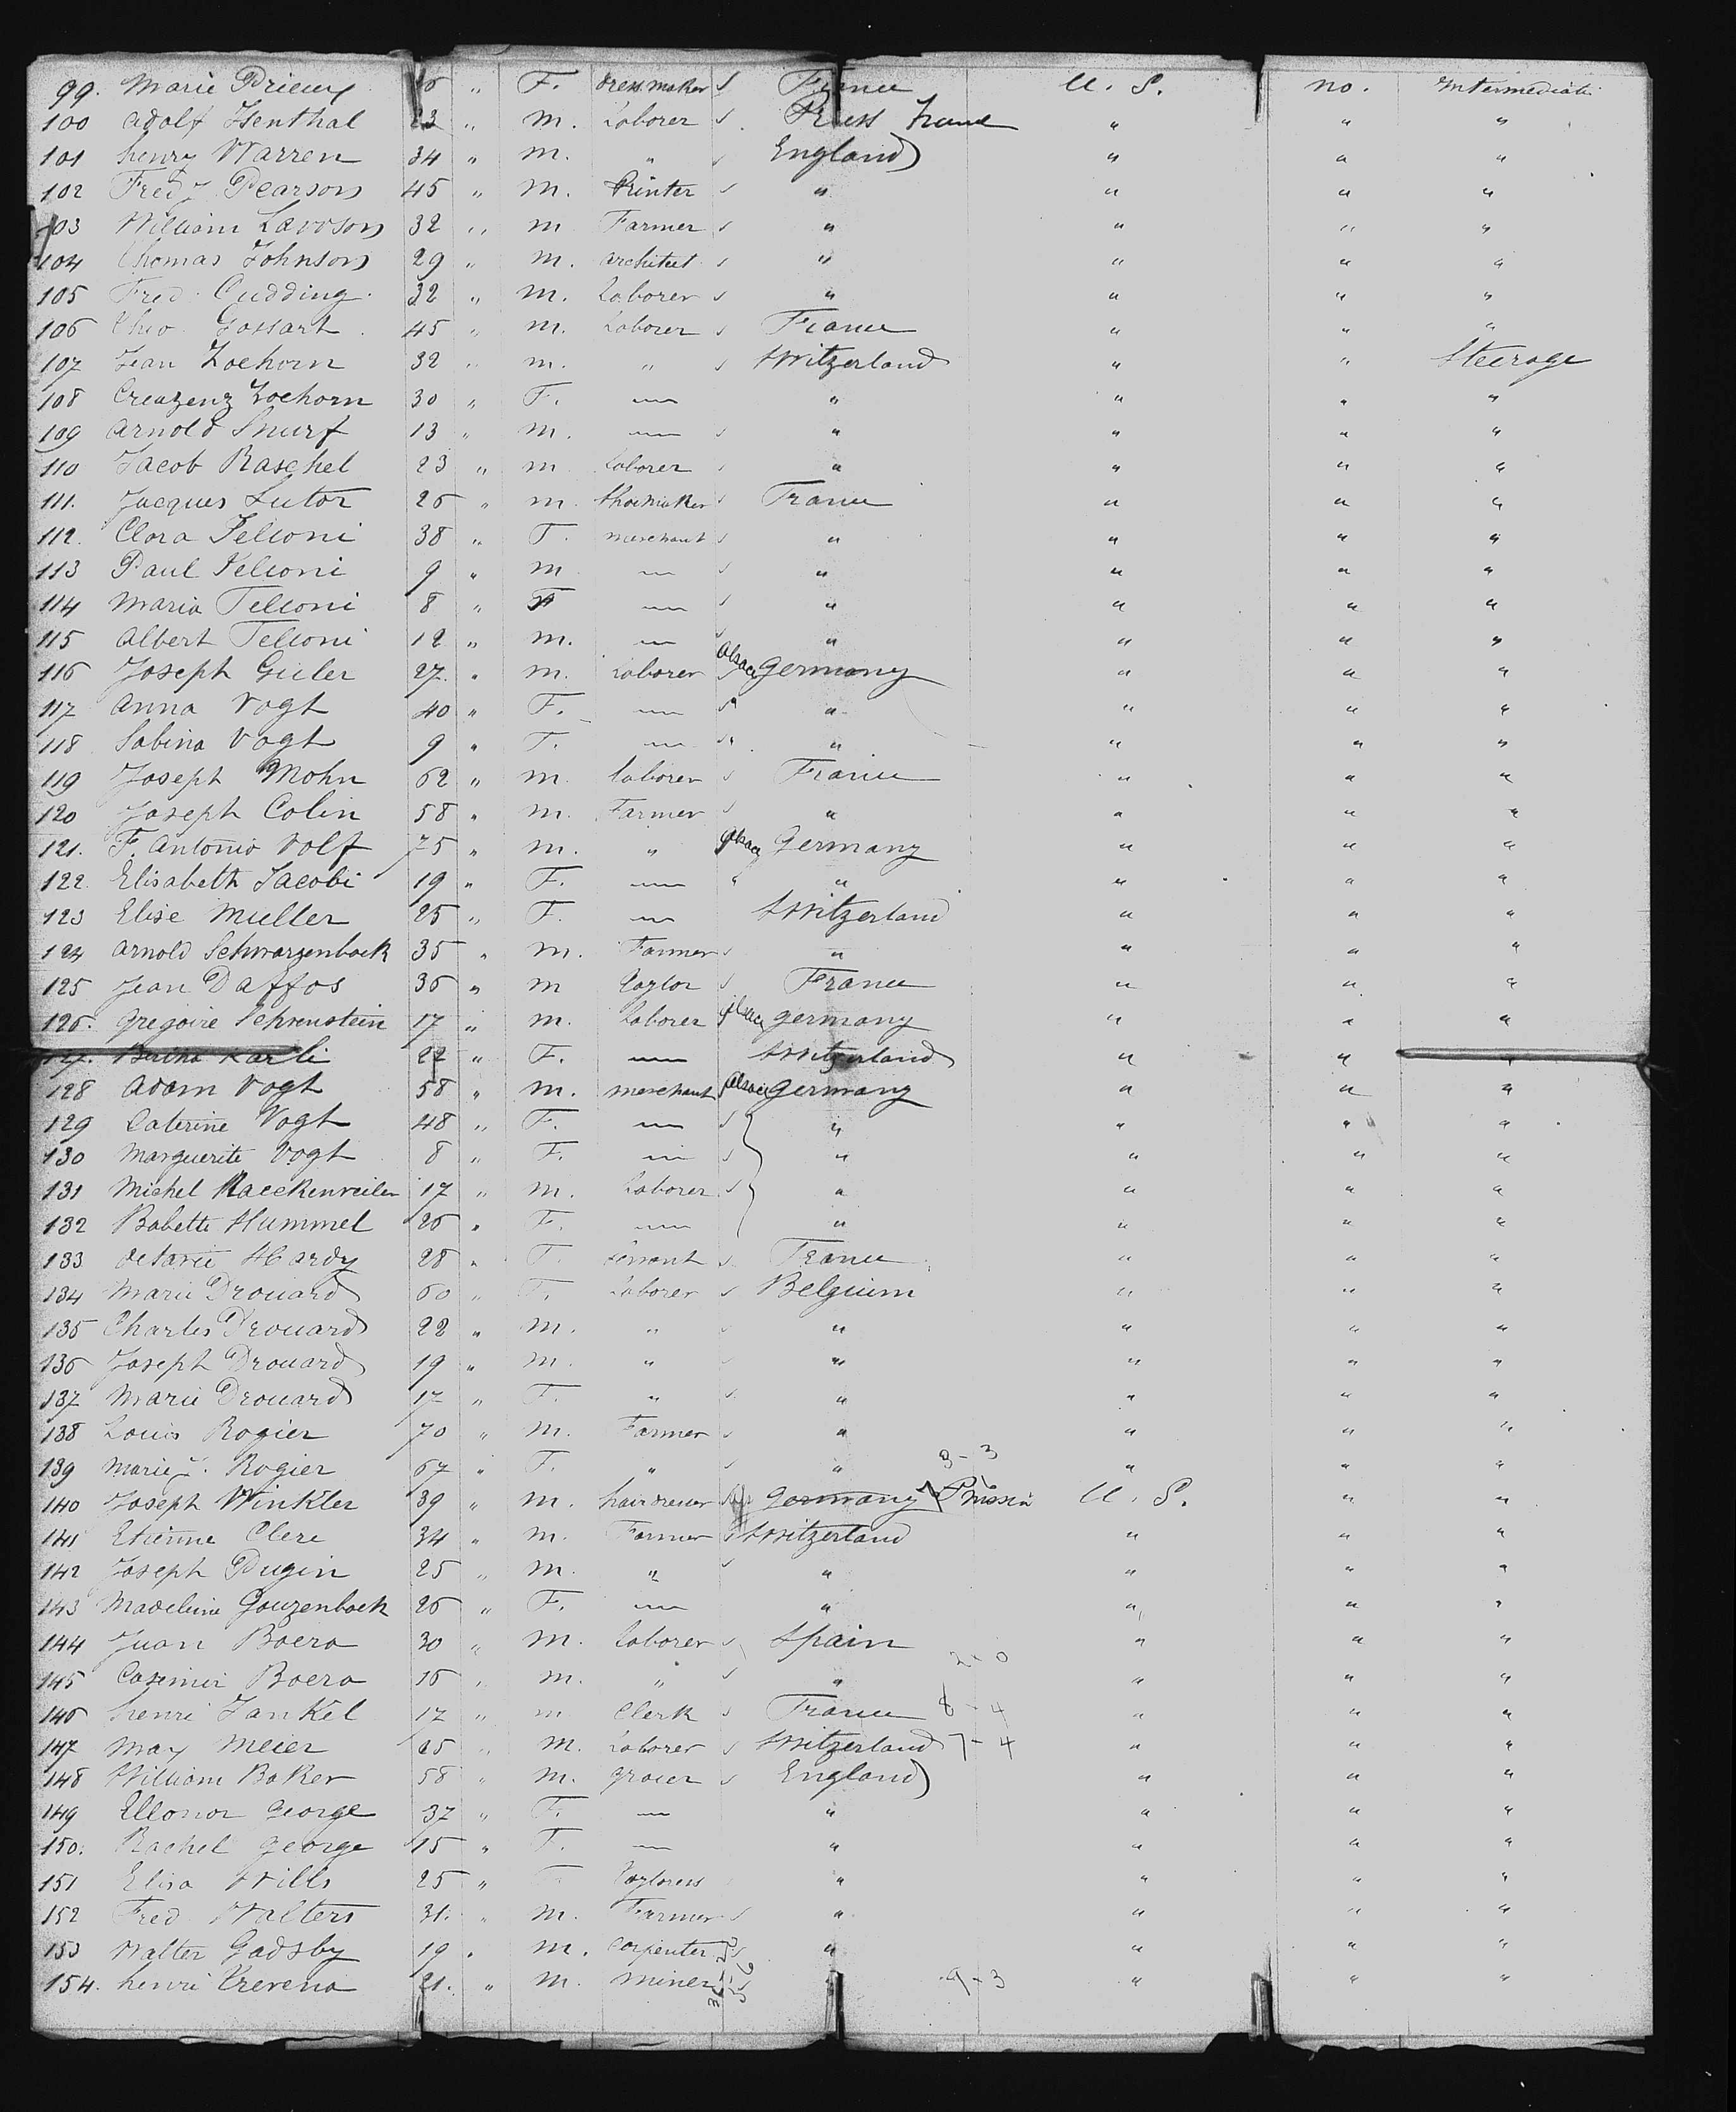 99. Marie Prieux 16 " F. dressmaker France U. S. no. Intermediate
100 Adolf Isenthal 23 " M. Laborer Pruss " " "
101 henry Warren 34 " M. " England " " "
102 Fred J Pearson 45 " M. Printer " " " "
103 William Lawson 32 " M Farmer " " " "
104 Thomas Johnson 29 " M. architect " " " "
105 Fred. Cudding 32 " M. Laborer " " " "
106 Theo Gossart 45 " M. Laborer France " " "
107 Jean Zoehorn 32 " M. " Switzerland " " Steerage
108 Creszenz Zoehorn 30 " F. — " " " "
109 Arnold Snurf 13 " M. — " " " "
110 Jacob Raschel 23 " M Laborer " " " "
111. Jacques Sutor 26 " M. Shoemaker France " " "
112. Clara Pelloni 38 " F. merchant " " " "
113 Paul Pelloni 9 " M — " " " "
114 Maria Telloni 8 " F — " " " "
115 Albert Telloni 12 " M. — " " " "
116 Joseph Guler 27. " M. Laborer Alsace Germany " " "
117 Anna Vogt 40 " F. — " " " " "
118 Sabina Vogt 9 " F. — " " " " "
119 Joseph Mohn 62 " M. Laborer France " " "
120 Joseph Colin 58 " M. Farmer " " " "
121. F. Antonio Volf 75 " M. " Alsace Germany " " "
122. Elisabeth Jacobi 19 " F. — " " " " "
123 Elise Muller 25 " F. — Switzerland " " "
124 Arnold Schwarzenback 35 " M. Farmer " " " "
125 Jean Daffos 36 " M Taylor France " " "
126. Gregoire Schrenstein 17 " M. Laborer Alsace Germany " " "
127. Bertha Karli 27 " F. — Switzerland " " "
128 Adam Vogt 58 " M. merchant Alsace Germany " " "
129 Caterine Vogt 48 " F. — " " " "
130 Marguerite Vogt 8 " F. — " " " "
131 Michel Raeckenweiler 17 " M. Laborer " " " "
132 Babette Hummel 26 " F. — " " " "
133 Octavie Hardy 28 " F. servant France " " "
134 Marie Drouard 60 " F. Laborer Belgium " " "
135 Charles Drouard 22 " M. " " " " "
136 Joseph Drouard 19 " M. " " " " "
137 Marie Drouard 17 " F. " " " " "
138 Louis Rogier 70 " M. Farmer " " " "
139 Marie J. Rogier 67 " F. " " 3-3 " " "
140 Joseph Winkler 39 " M. hairdresser Germany Prussia U. S. " "
141 Etienne Clere 34 " M. Farmer Switzerland " " "
142 Joseph Pugin 25 " M. " " " " "
143 Madeleine Gouzenback 26 " F. — " " " "
144 Juan Boera 30 " M. Laborer Spain " " "
145 Casimir Boera 16 " M. " " 2-0 " " "
146 henri Jankel 17 " M Clerk France 8-4 " " "
147 Max Meier 25 " M. Laborer Switzerland 7-4 " " "
148 William Baker 58 " M. grocer England " " "
149 Ellonor George 37 " F. — " " " "
150. Rachel George 15 " F. — " " " "
151 Elisa Wills 25 " F Tayloress " " " "
152 Fred Walters 31. " M. Farmer " " " "
153 Walter Gadsby 19 " M. Carpenter " " " "
154. henri Trevena 21. " M. Miner " 9-3 " " "